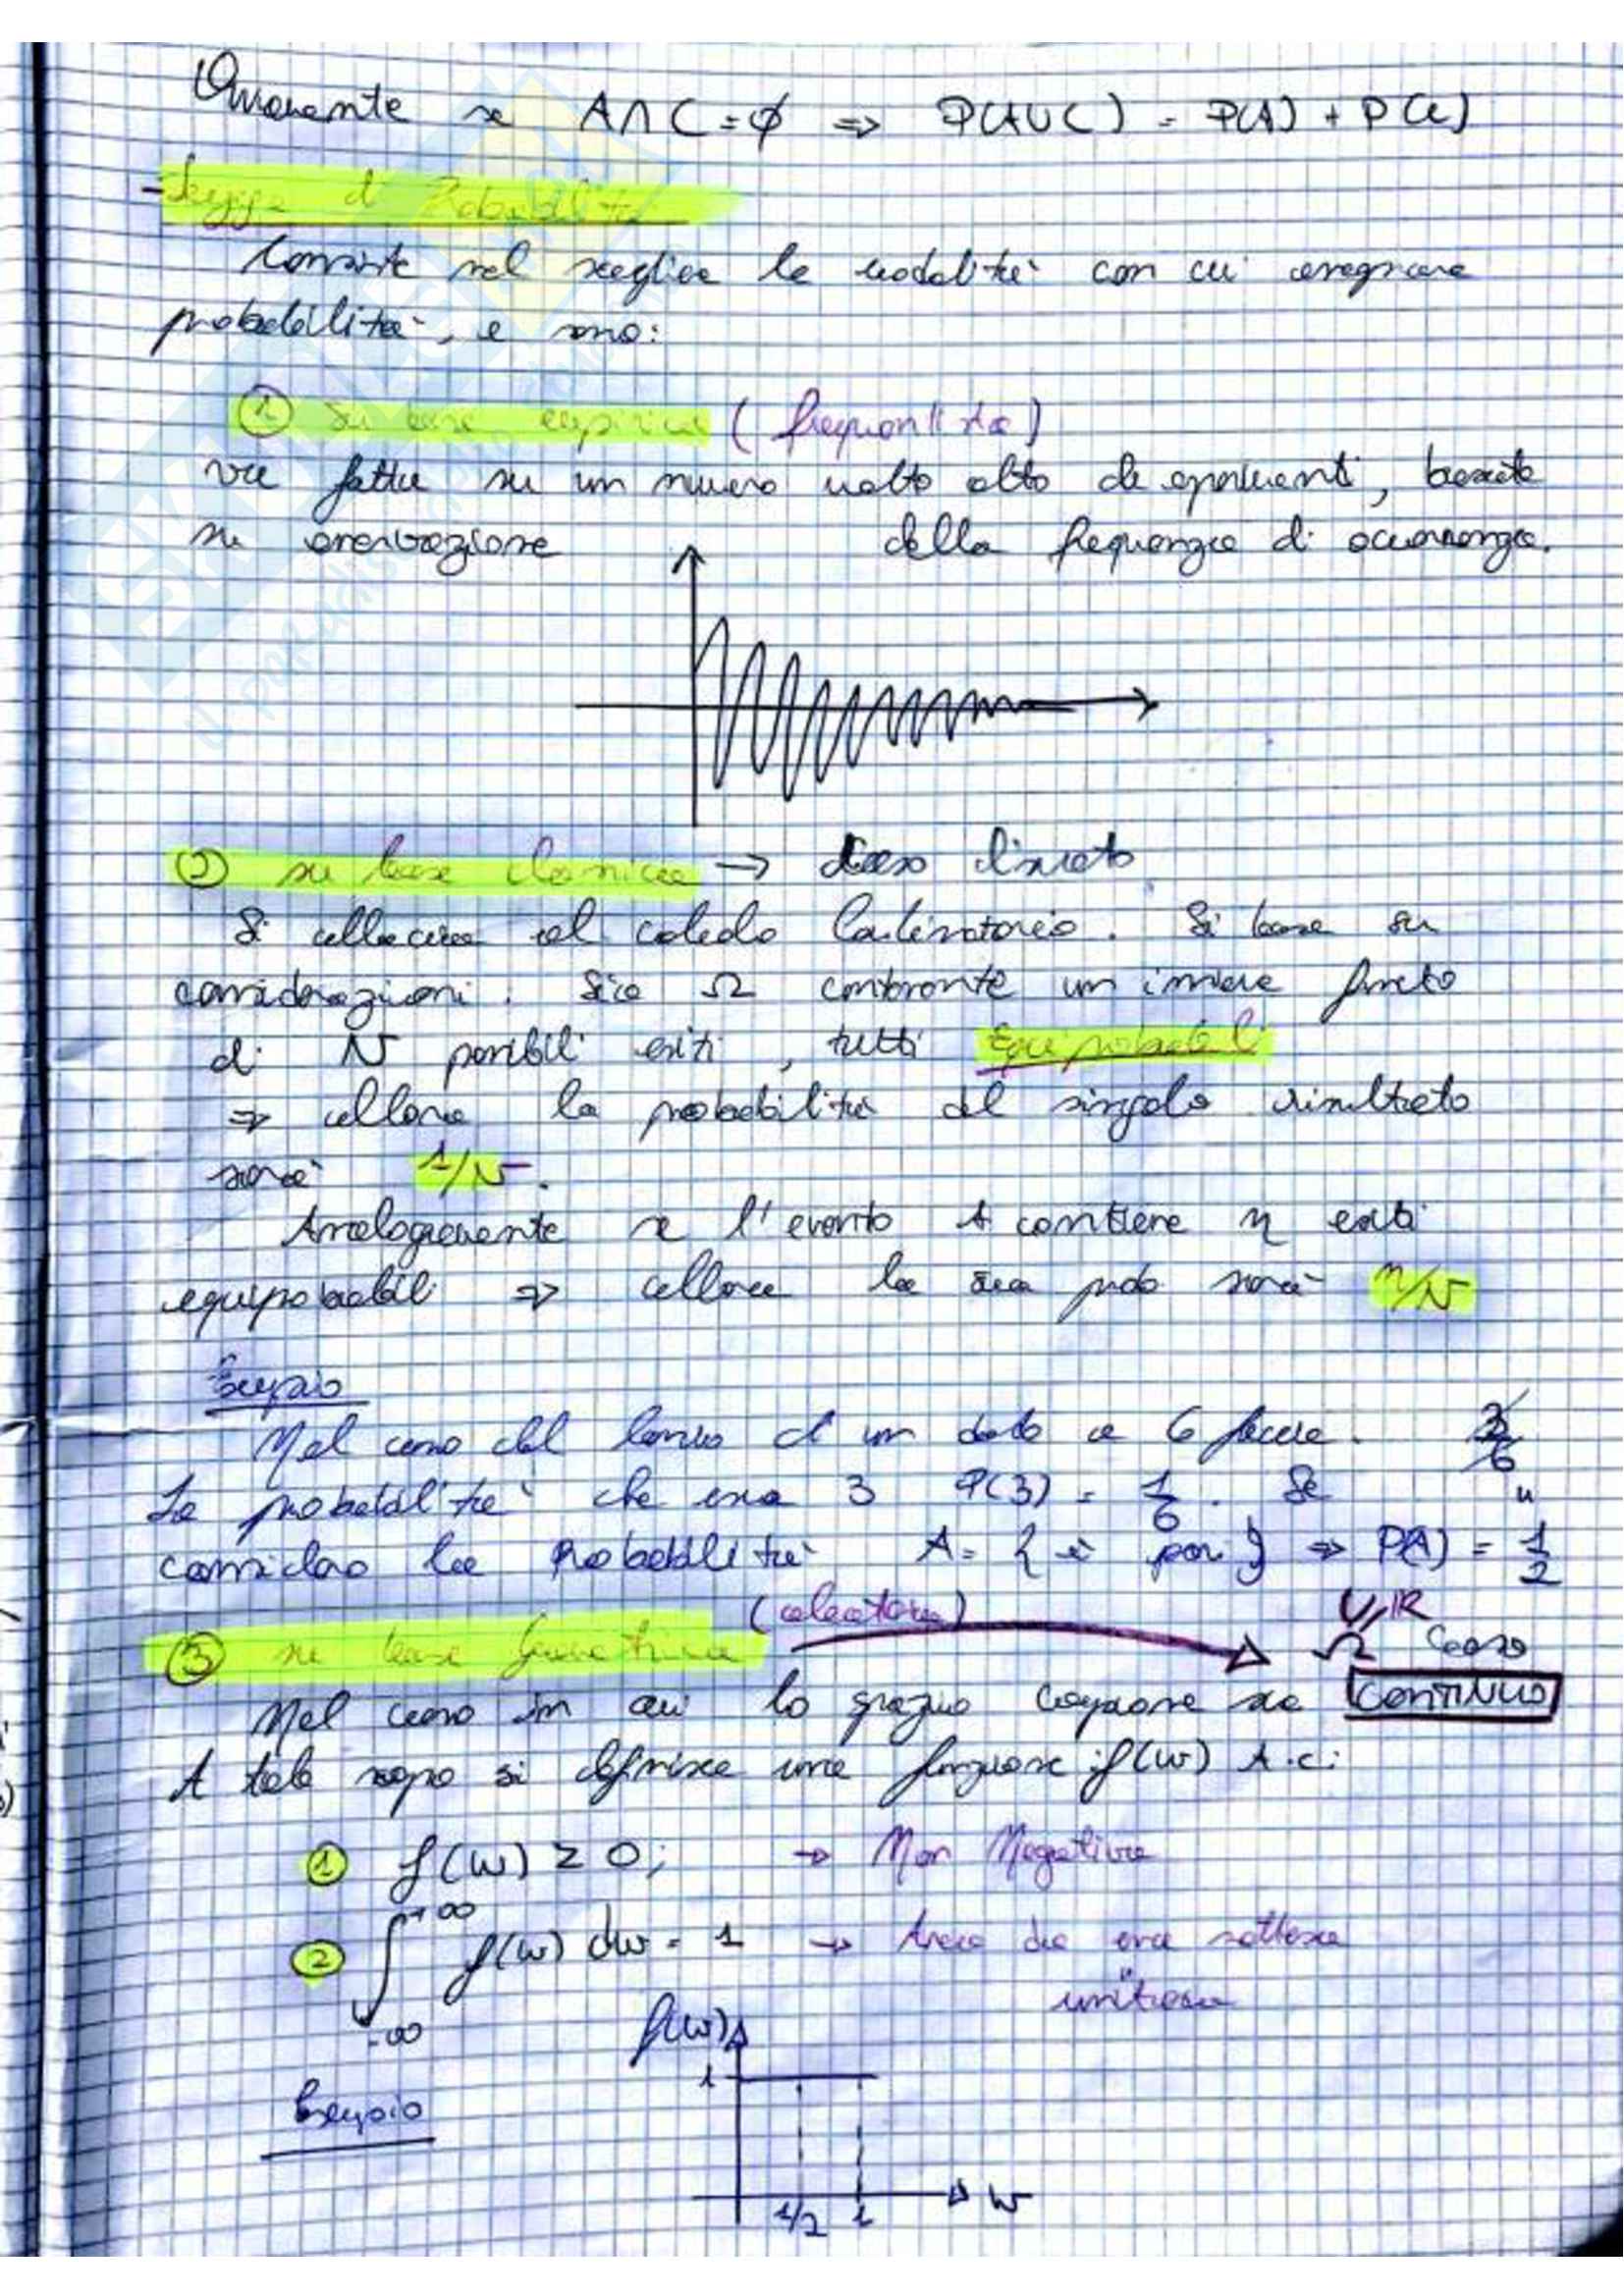 Ovviamente se A∩C=∅ ⇒ P(A∪C) = P(A) + P(C)
- Legge di Probabilità
Consiste nel scegliere le modalità con cui assegnare
probabilità, e sono:
① Su base empirica (frequentista)
va fatta su un numero molto alto di esperimenti, basata
su osservazione della frequenza di occorrenza.
② su base classica → caso discreto
Si allaccia al calcolo Combinatorio. Si basa su
considerazioni. Sia Ω contenente un insieme finito
di N possibili esiti, tutti Equiprobabili
⇒ allora la probabilità del singolo risultato
sarà 1/N.
Analogamente se l'evento A contiene n esiti
equiprobabili ⇒ allora la sua prob sarà n/N
Esempio
Nel caso del lancio di un dado a 6 facce. 3/6
La probabilità che esca 3 P(3) = 1/6 . Se "
considero la Probabilità A = { è pari } ⇒ P(A) = 1/2
③ su base geometrica Ω Caso
Nel caso in cui lo spazio campione sia CONTINUO
A tale scopo si definisce una funzione f(w) t.c:
① f(w) ≥ 0; → Non Negativa
② ∫ +∞ -∞ f(w) dw = 1 → Area da essa sottesa
unitaria
f(w)
1
Esempio
1/2 1 w